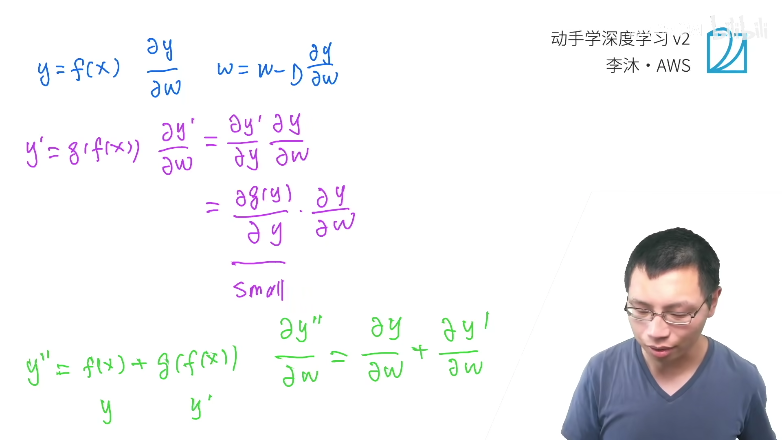 动手学深度学习 v2
李沐·AWS
bilibili
y = f(x) ∂y/∂w w = w - D ∂y/∂w
y' = g(f(x)) ∂y'/∂w = ∂y'/∂y ∂y/∂w
= ∂g(y)/∂y · ∂y/∂w
small
y'' = f(x) + g(f(x)) ∂y''/∂w = ∂y/∂w + ∂y'/∂w
y y'